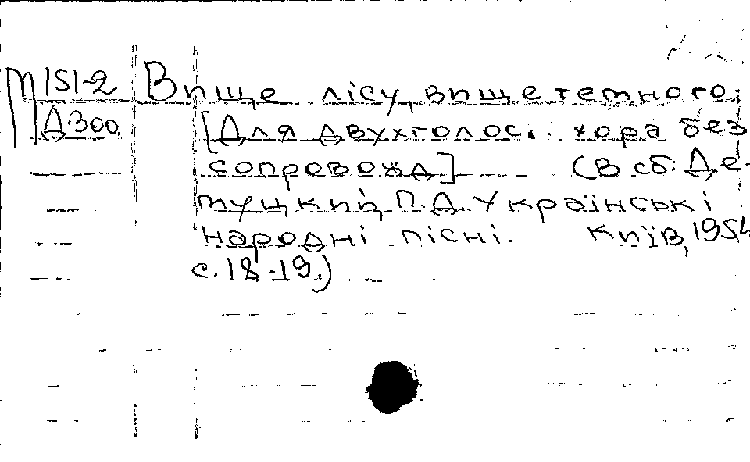 П151-2 Вище лісу, вище темного.
Д300 [Для двухголос. хора без
сопровожд] (В сб: Де-
муцкий, П.Д. Українські
народні пісні. Київ, 1954
с. 18-19.)